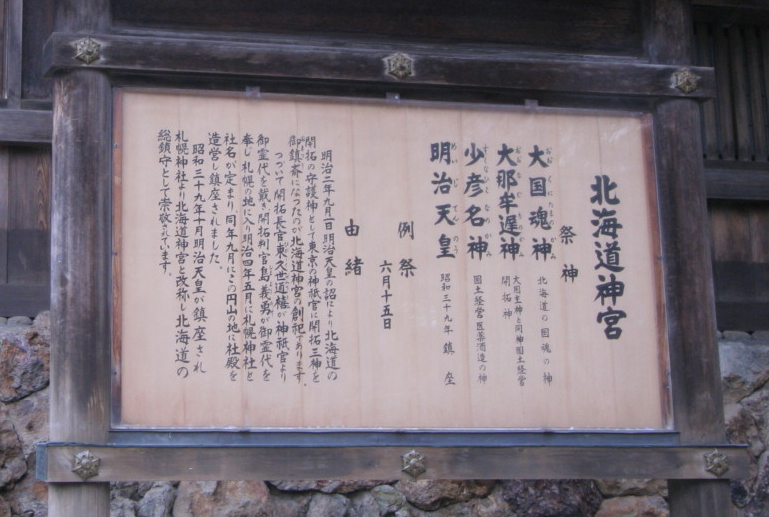 北海道神宮
祭神
大国魂神
おおくにたまのかみ
北海道の国魂の神
大那牟遅神
おおなむちのかみ
大国主神と同神国土経営
開拓神
少彦名神
すくなひこなのかみ
国土経営医薬酒造の神
明治天皇
めいじてんのう
昭和三十九年鎮座
例祭
六月十五日
由緒
明治二年九月一日明治天皇の詔により北海道の
開拓の守護神として東京の神祇官に開拓三神を
御鎮斎になつたのが北海道神宮の創祀であります。
つづいて開拓長官東久世通禧が神祇官より
御霊代を戴き開拓判官島義勇が御霊代を
奉し札幌の地に入り明治四年五月に札幌神社と
社名が定まり同年九月にこの円山の地に社殿を
造営し鎮座されました。
昭和三十九年十月明治天皇が鎮座され
札幌神社より北海道神宮と改称し北海道の
総鎮守として崇敬されています。